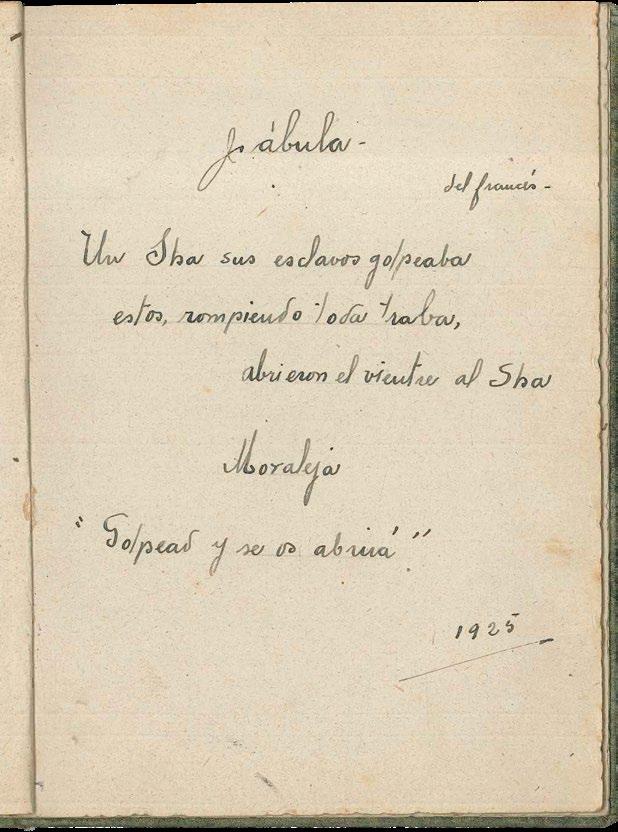 Fábula -
del francés -
Un Sha sus esclavos golpeaba
estos, rompiendo toda traba,
abrieron el vientre al Sha
Moraleja
"Golpead y se os abrirá".
1925